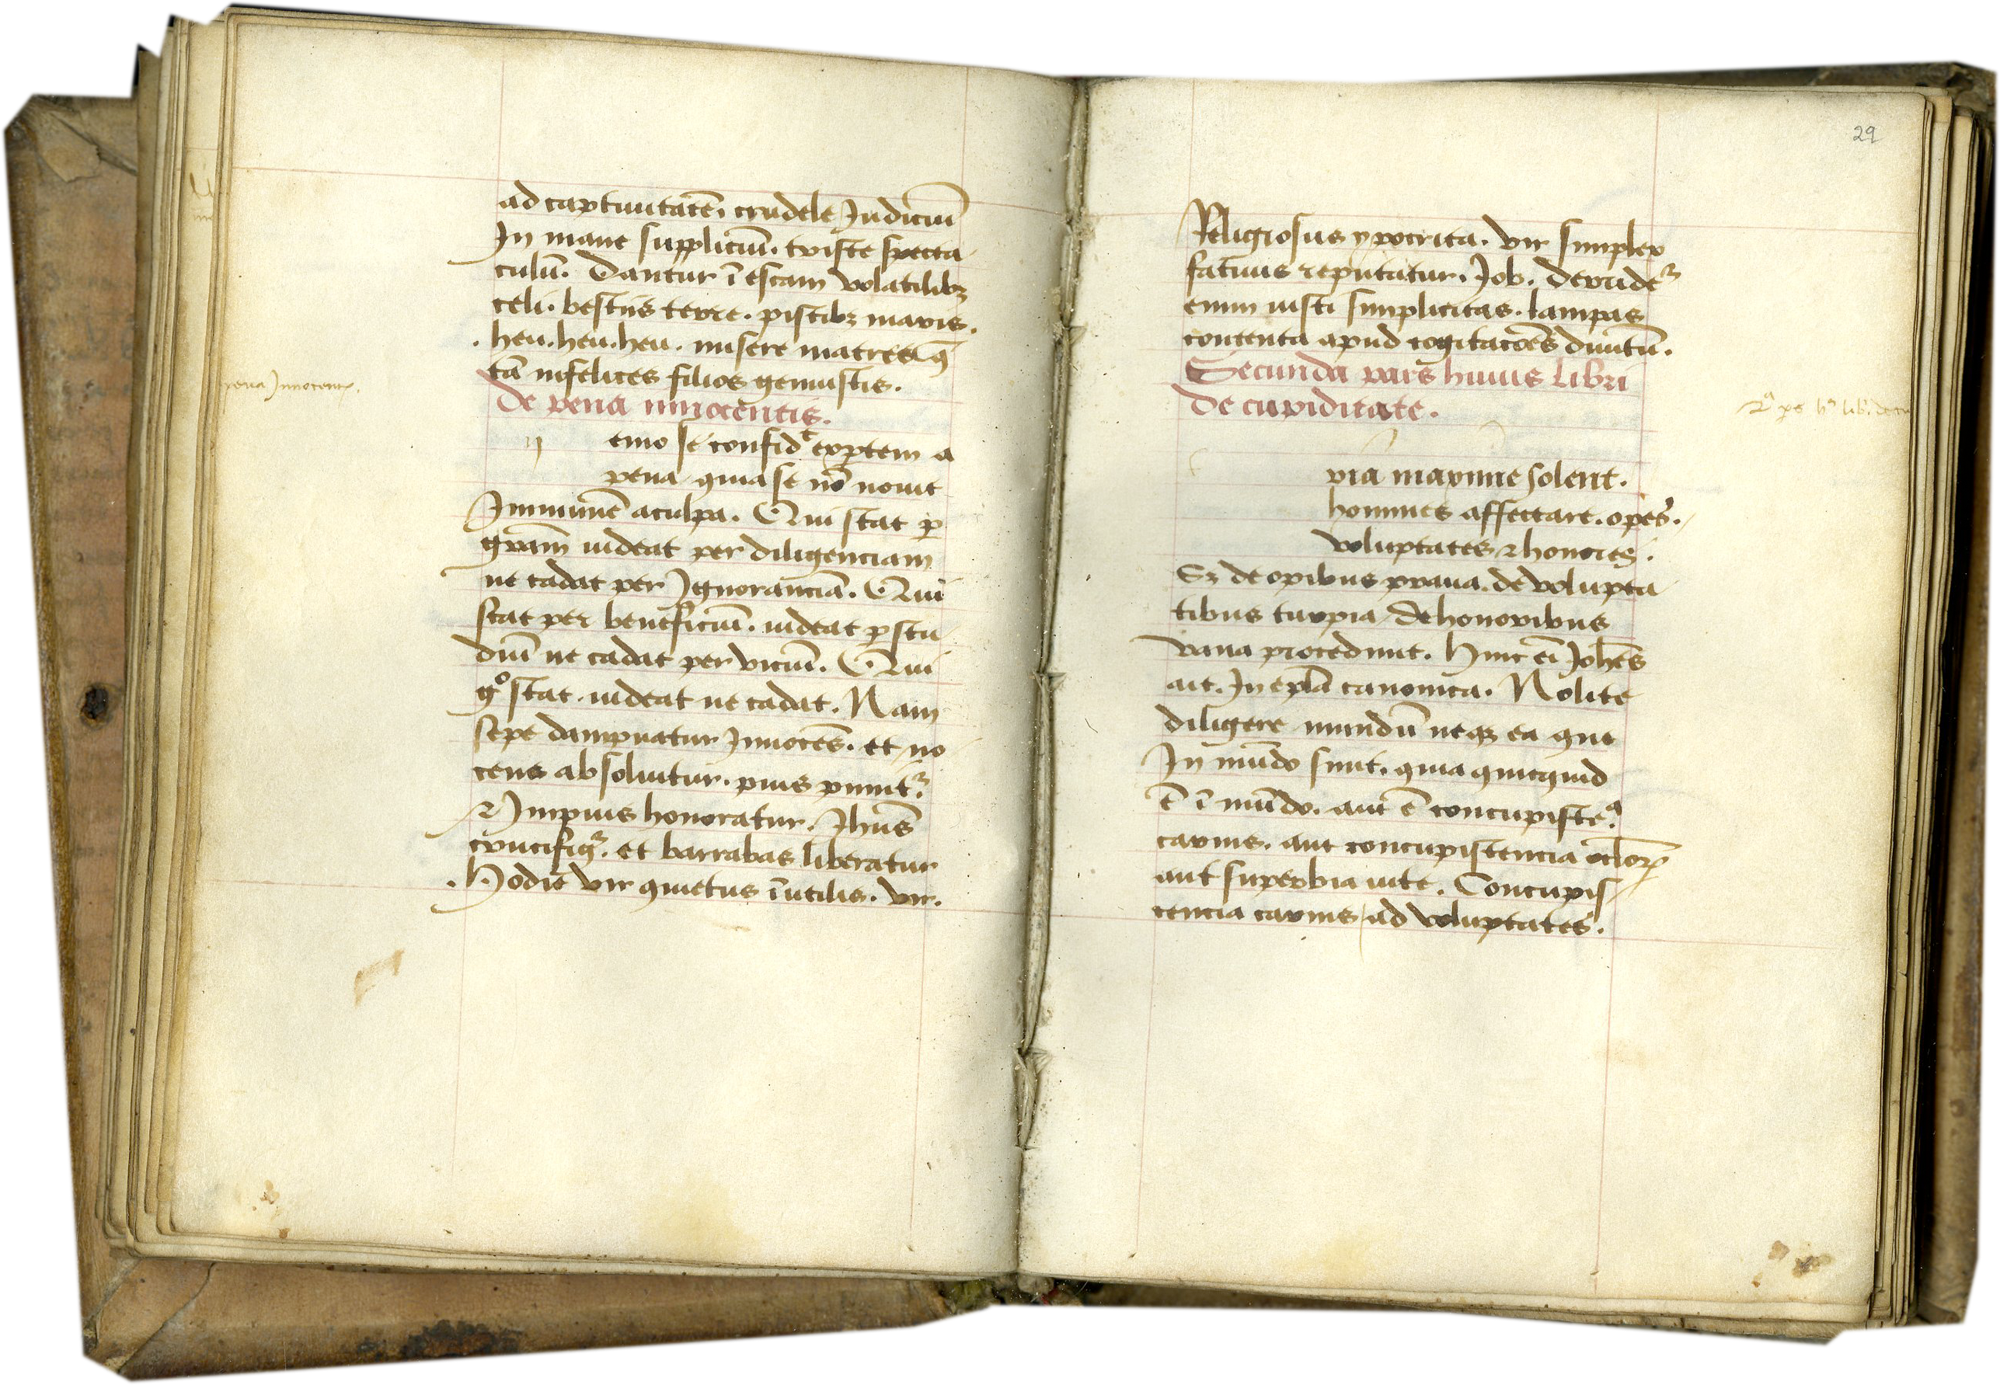 ad captiuitatē. crudele Judiciū
In mane suppliciū. triste specta
culū. Dantur ī escam volatilibꝫ
celi. bestiis terre. piscibꝫ maris.
. heu. heu. heu. misere matres q̄
tā infelices filios genuistis.
pena Innocent
De pena innocentis.
n
emo se confidᵗ exptem a
pena quia se nō nouit
Immunē a culpa. Qui stat ꝑ
grām uideat per diligenciam
ne cadat per Ignoranciā. Qui
stat per beneficiū. uideat ꝑ stu
diū ne cadat per viciū. Qui
gº stat. uideat ne cadat. Nam
sepe dampnatur Innocēs. et no
cens absoluitur. pius punitᷣ.
Impius honoratur. Jhūs
crucifigᷣ. et barrabas liberatur
. Hodie vir quietus īutilis. vir.
29
Religiosus ypocrita. vir simplex
fatuus reputatur. Job. Derideᷣ
enim iusti simplicitas. lampas
contenta apud cogitacōēs diuitū.
Secunda pars huius libri
De cupiditate.
2ª ps hꝰ lib. de cu
c
ria maxime solent.
homines affectare. opes.
voluptates ⁊ honores.
Sꝫ de opibus praua. de volupta
tibus turpia de honoribus
vana procedunt. Hinc eī Johēs
ait. In eplā canonica. Nolite
diligere mundū neqꝫ ea que
In mūdo sunt. quia quicquid
ē ī mūdo. aut ē concupisceᵃ.
carnis. aut concupiscencia oclorꝝ
aut superbia uite. Concupis
cencia carnis ad voluptates.